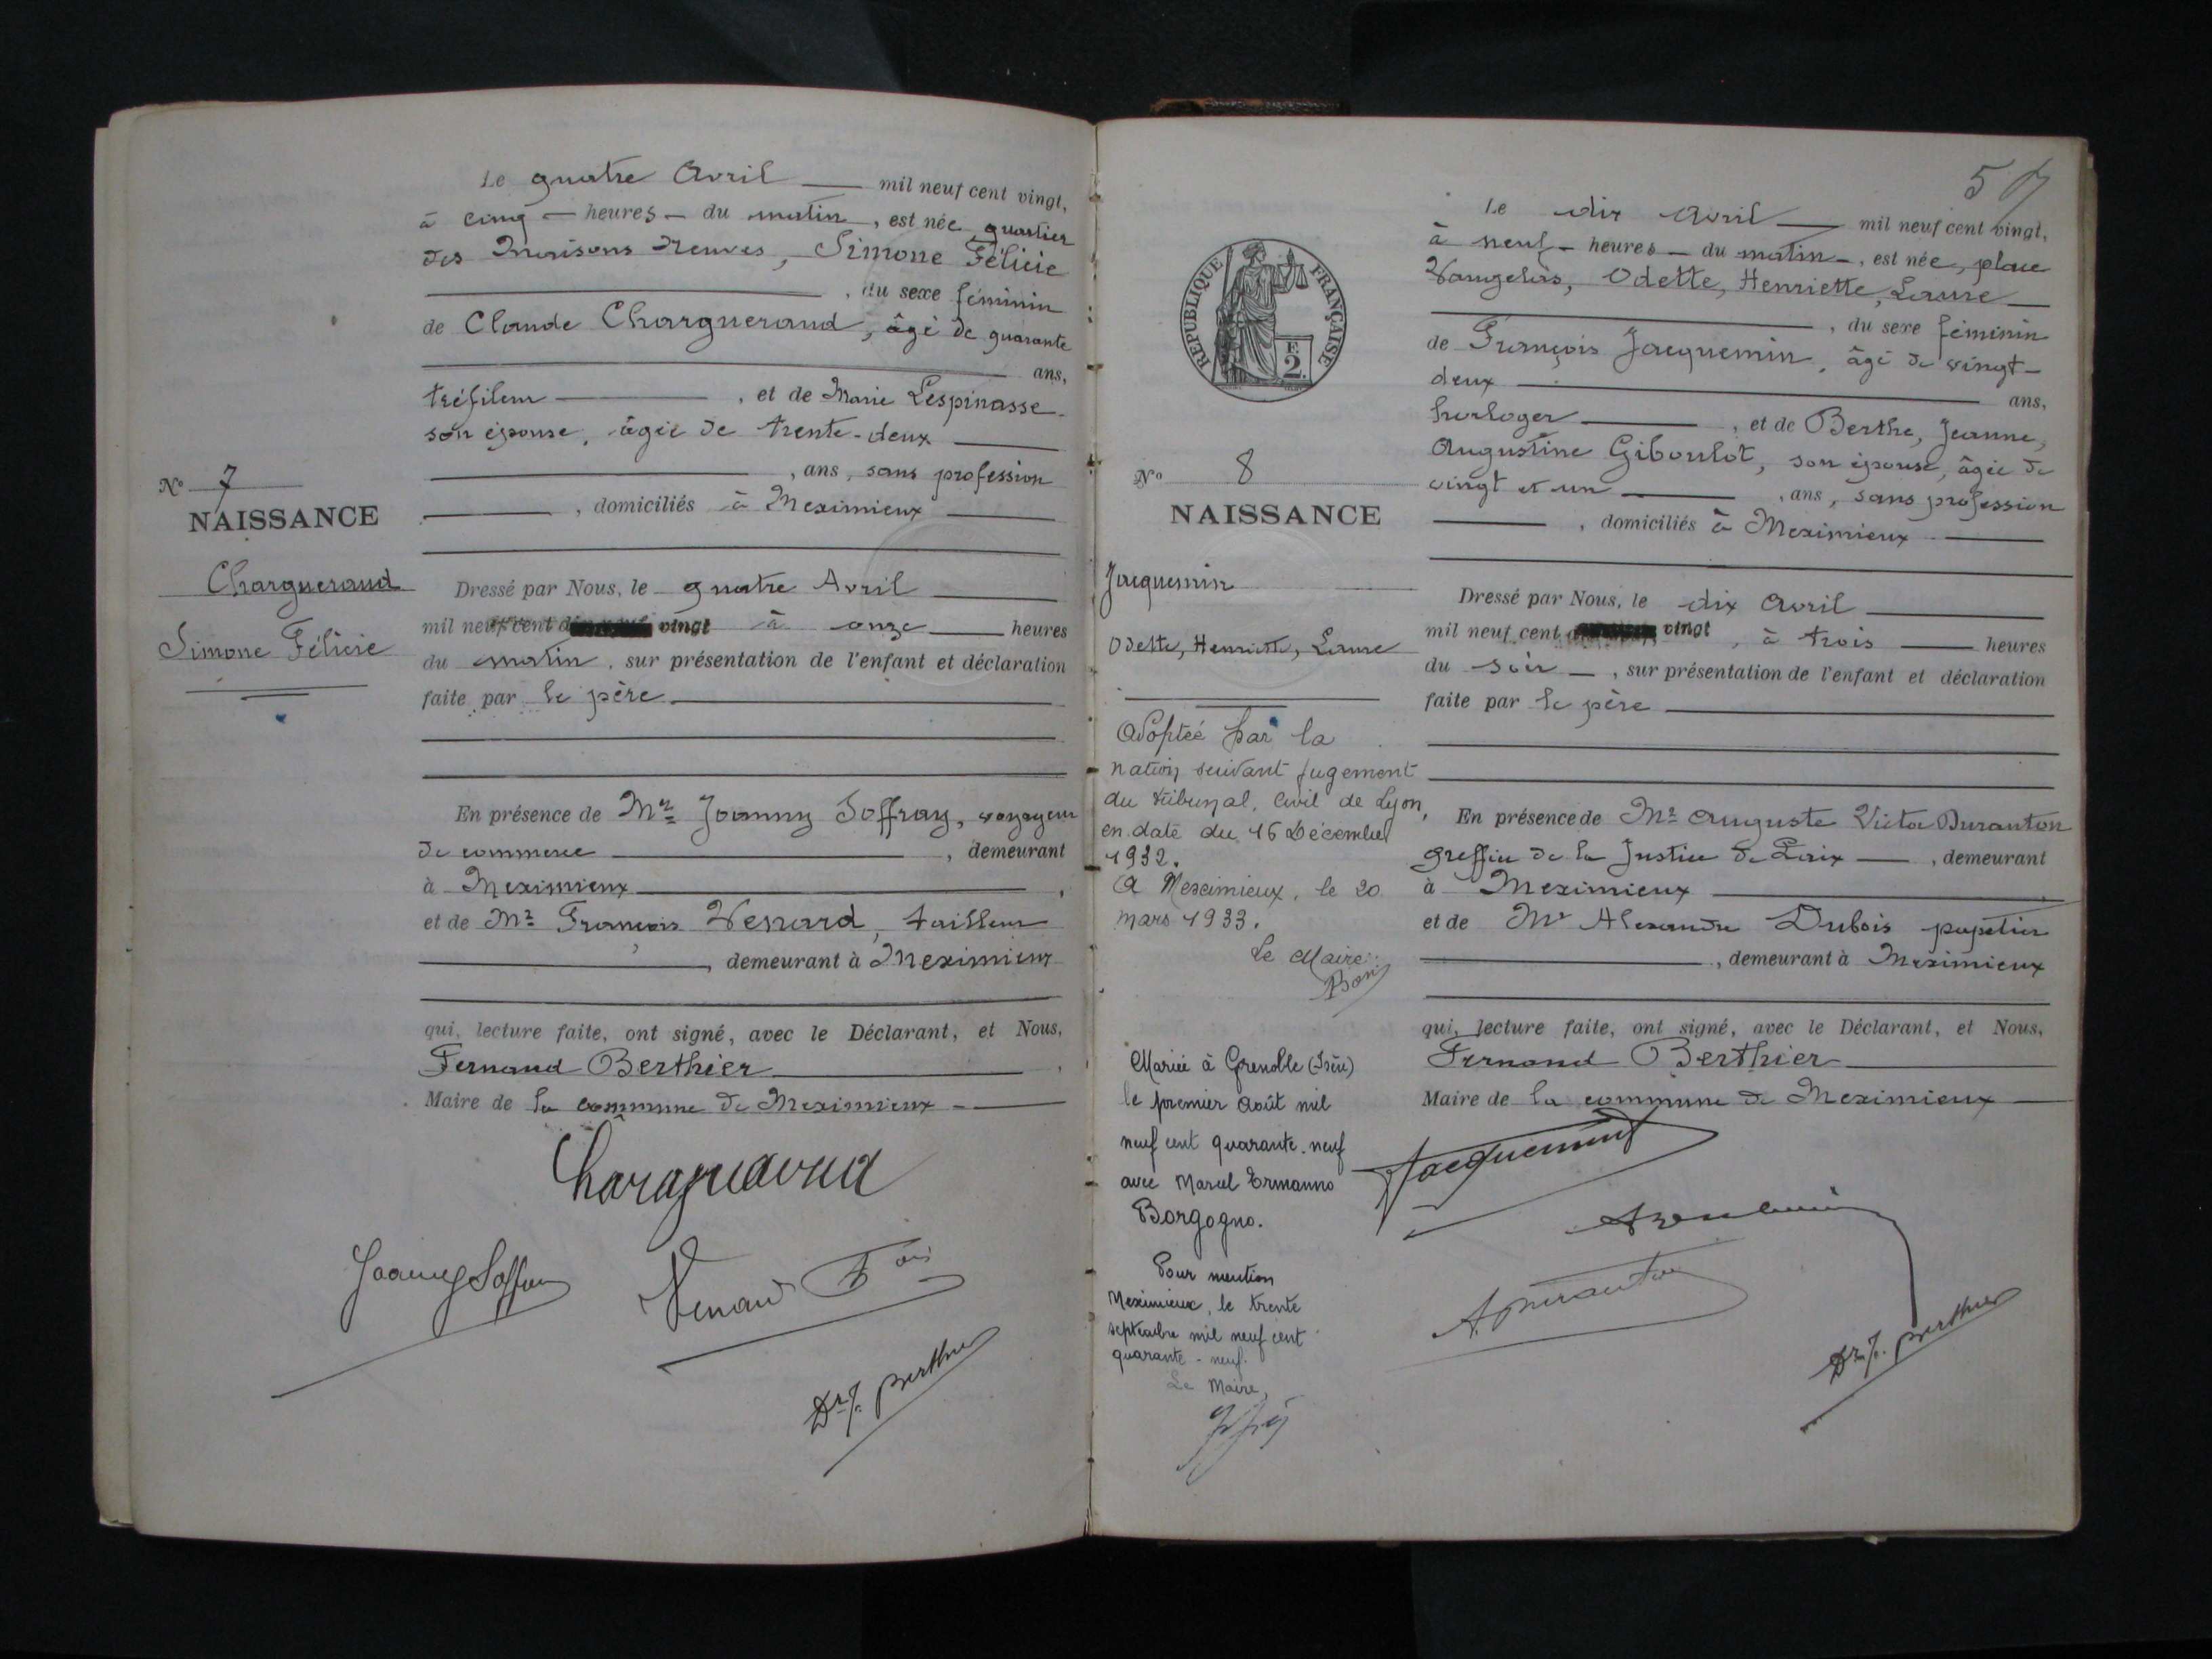 Le quatre Avril mil neuf cent vingt,
à cinq heures du matin, est née quartier
des Maisons neuves, Simone Félicie
, du sexe féminin
de Claude Charguerand, âgé de quarante
ans,
tréfileur , et de Marie Lespinasse
son épouse, âgée de trente-deux
, ans, sans profession
, domiciliés à Meximieux
No 7
NAISSANCE
Charguerand
Simone Félicie
Dressé par Nous, le quatre Avril
mil neuf cent vingt à onze heures
du matin, sur présentation de l'enfant et déclaration
faite par le père
En présence de Mr Joanny Soffray, voyageur
de commerce , demeurant
à Meximieux ,
et de Mr François Venard, tailleur
, demeurant à Meximieux
qui, lecture faite, ont signé, avec le Déclarant, et Nous,
Fernand Berthier ,
Maire de la commune de Meximieux
Joanny Soffray
Venard Fois
Dr F. Berthier
5
RÉPUBLIQUE FRANÇAISE
F.
2.
No 8
NAISSANCE
Jacquemin
Odette, Henriette, Laure
Adoptée par la
nation suivant jugement
du tribunal, civil de Lyon,
en date du 16 Décembre
1932.
A Meximieux, le 20
mars 1933.
Le Maire:
Mariée à Grenoble (Isère)
le premier Août mil
neuf cent quarante-neuf
avec Marcel Ermanno
Borgogno.
Pour mention
Meximieux, le trente
septembre mil neuf cent
quarante-neuf.
Le Maire,
Le dix avril mil neuf cent vingt,
à neuf heures du matin, est née, place
Vaugelas, Odette, Henriette, Laure
, du sexe féminin
de François Jacquemin, âgé de vingt-
deux ans,
horloger , et de Berthe, Jeanne,
Augustine Giboulot, son épouse, âgée de
vingt et un , ans, sans profession
, domiciliés à Meximieux
Dressé par Nous, le dix avril
mil neuf cent vingt, à trois heures
du soir, sur présentation de l'enfant et déclaration
faite par le père
En présence de Mr Auguste Victor Duranton
greffier de la Justice de Paix , demeurant
à Meximieux
et de Mr Alexandre Dubois papetier
, demeurant à Meximieux
qui, lecture faite, ont signé, avec le Déclarant, et Nous,
Fernand Berthier
Maire de la commune de Meximieux
Jacquemin
A Duranton
Dr F. Berthier